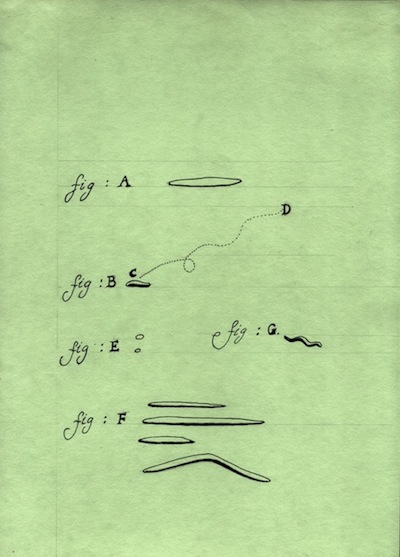 fig : A
D
C
fig : B
fig : E
fig : G.
fig : F